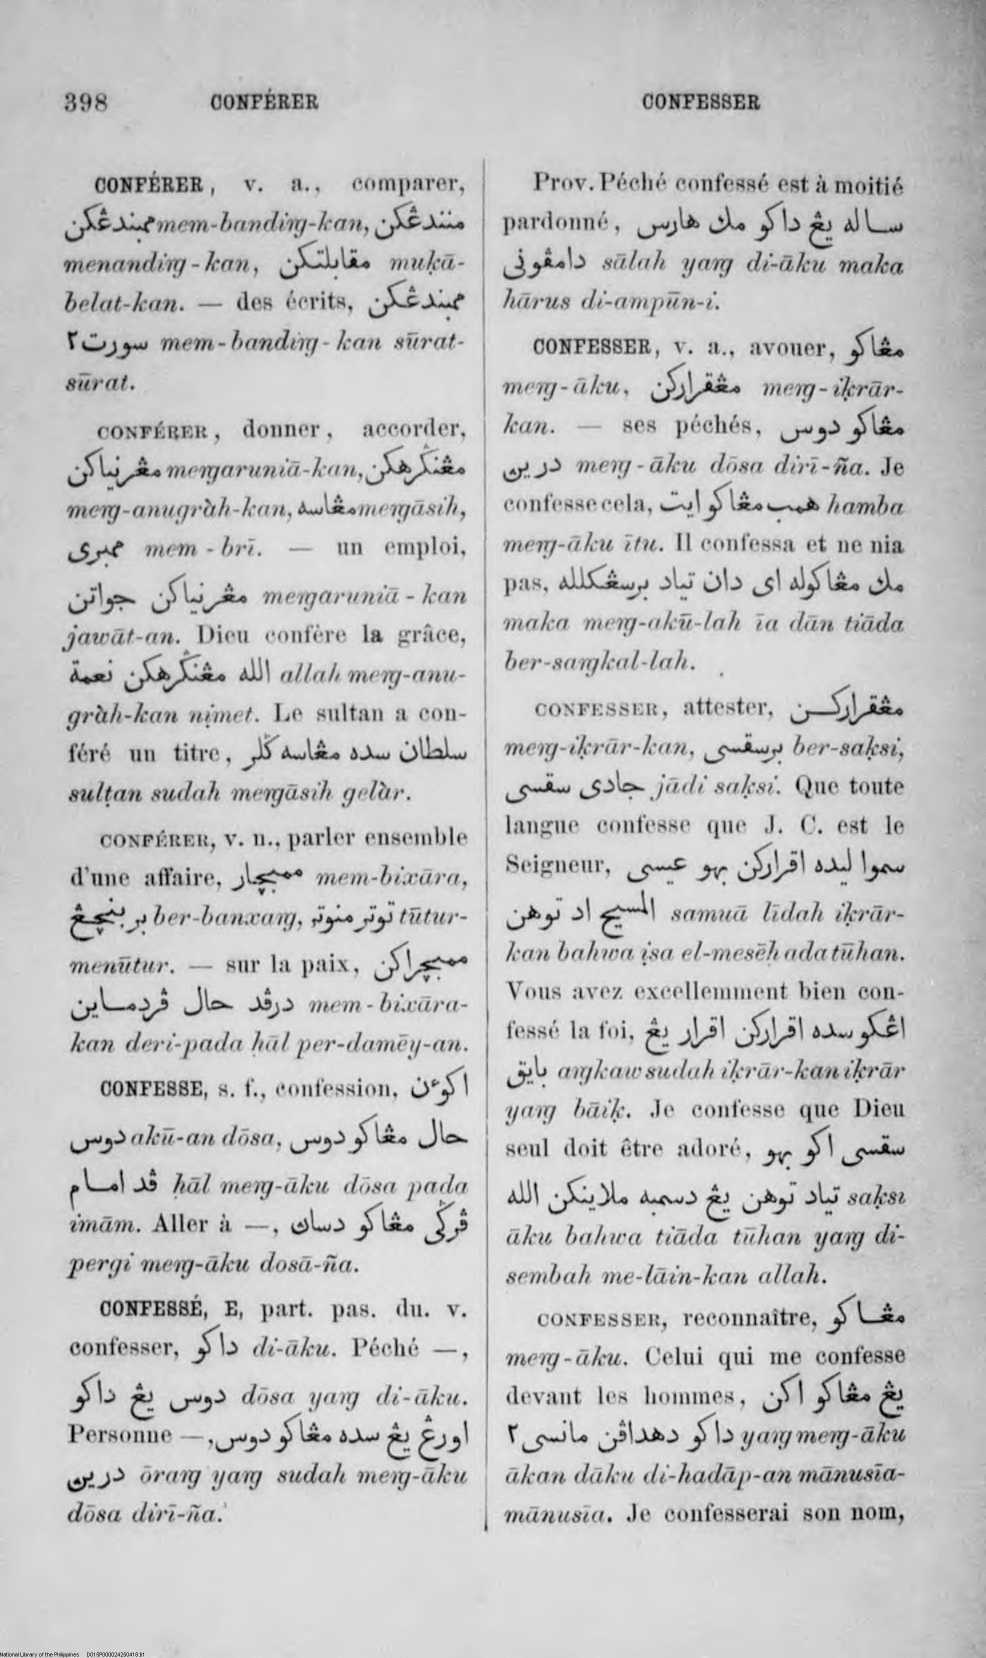 398 CONFÉRER CONFESSER
CONFÉRER, v. a., comparer,
ممبندڠكن mem-bandiṅg-kan, مننندڠكن
menandiṅg-kan, مقابلتكن muḳā-
belat-kan. — des écrits, ممبندڠكن
سورت٢ mem-bandiṅg-kan sūrat-
sūrat.
CONFÉRER, donner, accorder,
مڠرنياكن meṅgaruniā-kan, مڠنڬرهكن
meṅg-anugràh-kan, مڠاسه meṅgāsih,
ممبرى mem-brī. — un emploi,
مڠرنياكن جواتن meṅgaruniā-kan
jawāt-an. Dieu confère la grâce,
الله مڠنڬرهكن نعمة allah meṅg-anu-
gràh-kan niạmet. Le sultan a con-
féré un titre, سلطان سده مڠاسه ڬلر
sulṭan sudah meṅgāsih gelàr.
CONFÉRER, v. n., parler ensemble
d'une affaire, ممبچار mem-bixāra,
بربنچڠ ber-banxaṅg, توتر منوتر tūtur-
menūtur. — sur la paix, ممبچراكن
درڤد حال ڤردماين mem-bixāra-
kan deri-pada ḥāl per-damēy-an.
CONFESSE, s. f., confession, اكوءن
دوس akū-an dōsa, حال مڠاكو دوس
ڤد امام ḥāl meṅg-āku dōsa pada
imām. Aller à —, ڤرڬى مڠاكو دساڽ
pergi meṅg-āku dosā-ña.
CONFESSÉ, E, part. pas. du. v.
confesser, داكو di-āku. Péché —,
دوس يڠ داكو dōsa yaṅg di-āku.
Personne —, اورڠ يڠ سده مڠاكو دوس
دريڽ ōraṅg yaṅg sudah meṅg-āku
dōsa dirī-ña.
Prov. Péché confessé est à moitié
pardonné, ساله يڠ داكو مك هارس
دامڤونى sālah yaṅg di-āku maka
hārus di-ampūn-i.
CONFESSER, v. a., avouer, مڠاكو
meṅg-āku, مڠقراركن meṅg-iḳrār-
kan. — ses péchés, مڠاكو دوس
دريڽ meṅg-āku dōsa dirī-ña. Je
confesse cela, همب مڠاكو ايت hamba
meṅg-āku ītu. Il confessa et ne nia
pas, مك مڠاكوله اى دان تياد برسڠكلله
maka meṅg-akū-lah īa dān tiāda
ber-saṅgkal-lah.
CONFESSER, attester, مڠقراركن
meṅg-iḳrār-kan, برسقسى ber-saḳsi,
جادى سقسى jādi saḳsi. Que toute
langue confesse que J. C. est le
Seigneur, سموا ليده اقراركن بهو عيسى
المسيح اد توهن samuā līdah iḳrār-
kan bahwa ịsa el-mesēḥ ada tūhan.
Vous avez excellemment bien con-
fessé la foi, اڠكو سده اقراركن اقرار يڠ
بايق aṅgkaw sudah iḳrār-kan iḳrār
yaṅg bāiḳ. Je confesse que Dieu
seul doit être adoré, سقسى اكو بهو
تياد توهن يڠ دسمبه ملاينكن الله saḳsi
āku bahwa tiāda tūhan yaṅg di-
sembah me-lāin-kan allah.
CONFESSER, reconnaître, مڠاكو
meṅg-āku. Celui qui me confesse
devant les hommes, يڠ مڠاكو اكن
داكو دهداڤن مانسى٢ yaṅg meṅg-āku
ākan dāku di-hadāp-an mānusīa-
mānusīa. Je confesserai son nom,
National Library of the Philippines